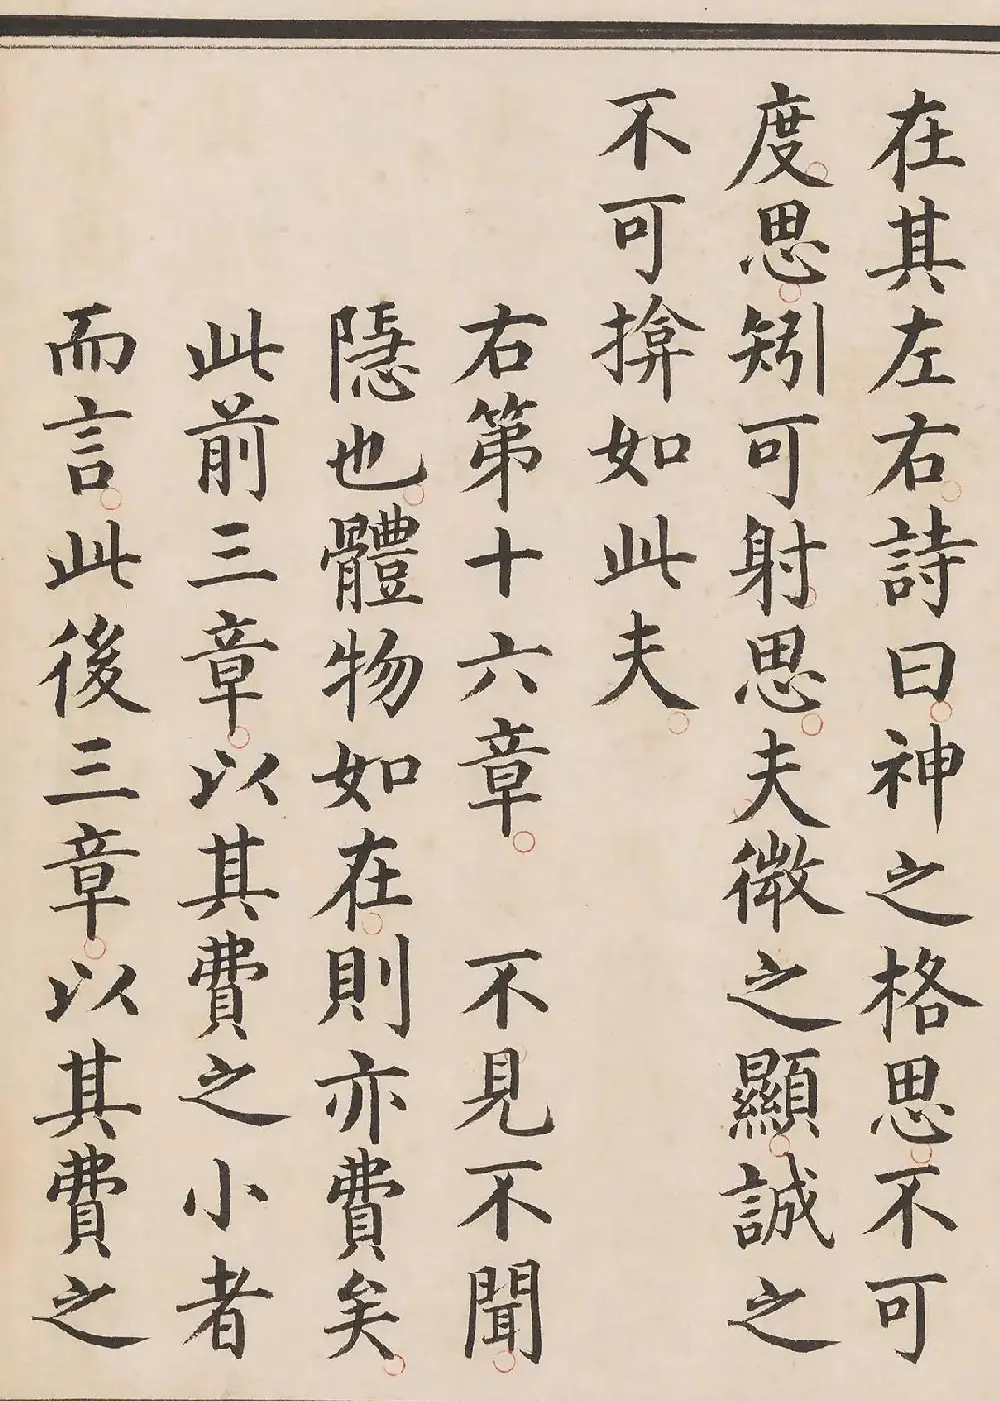 在其左右詩曰神之格思不可
度思矧可射思夫微之顯誠之
不可揜如此夫
右第十六章 不見不聞
隱也體物如在則亦費矣
此前三章以其費之小者
而言此後三章以其費之